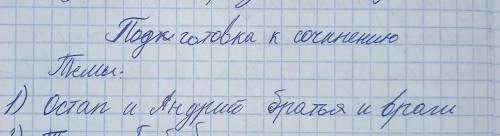 Подготовка к сочинению
Темы.
1) Остап и Андрий братья и враги